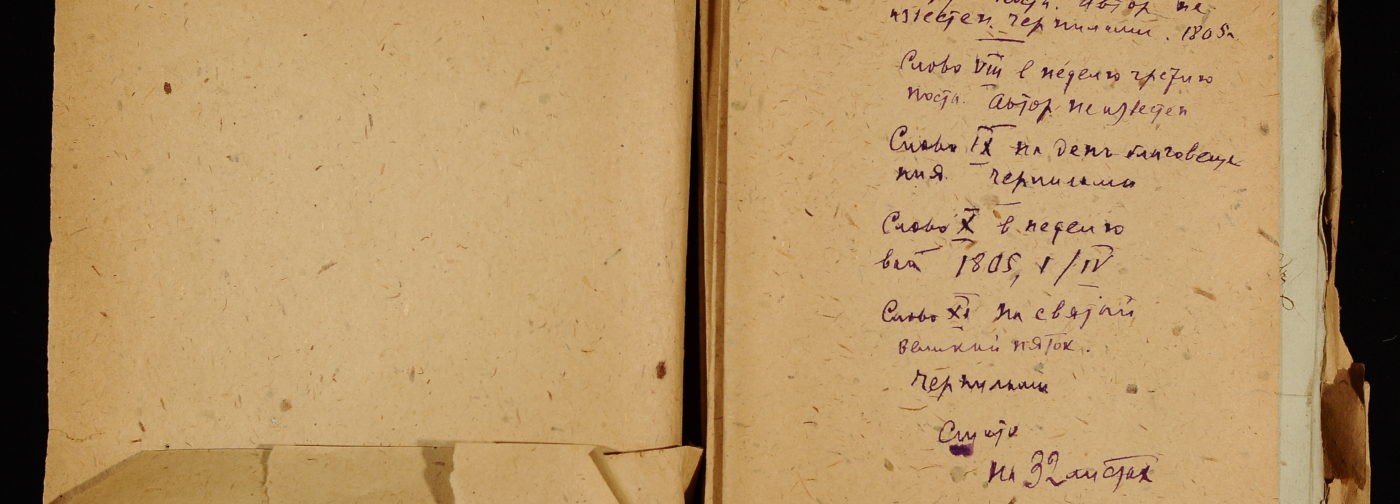 поста. Автор не
известен. Чернилами. 1805 г.
Слово VIII в неделю третию
поста. Автор неизвестен
Слово IX на день благовеще
ния. Чернилами
Слово X в неделю
ваи 1805, I/IV
Слово XI на святый
великий пяток.
Чернилами
на 32 листах